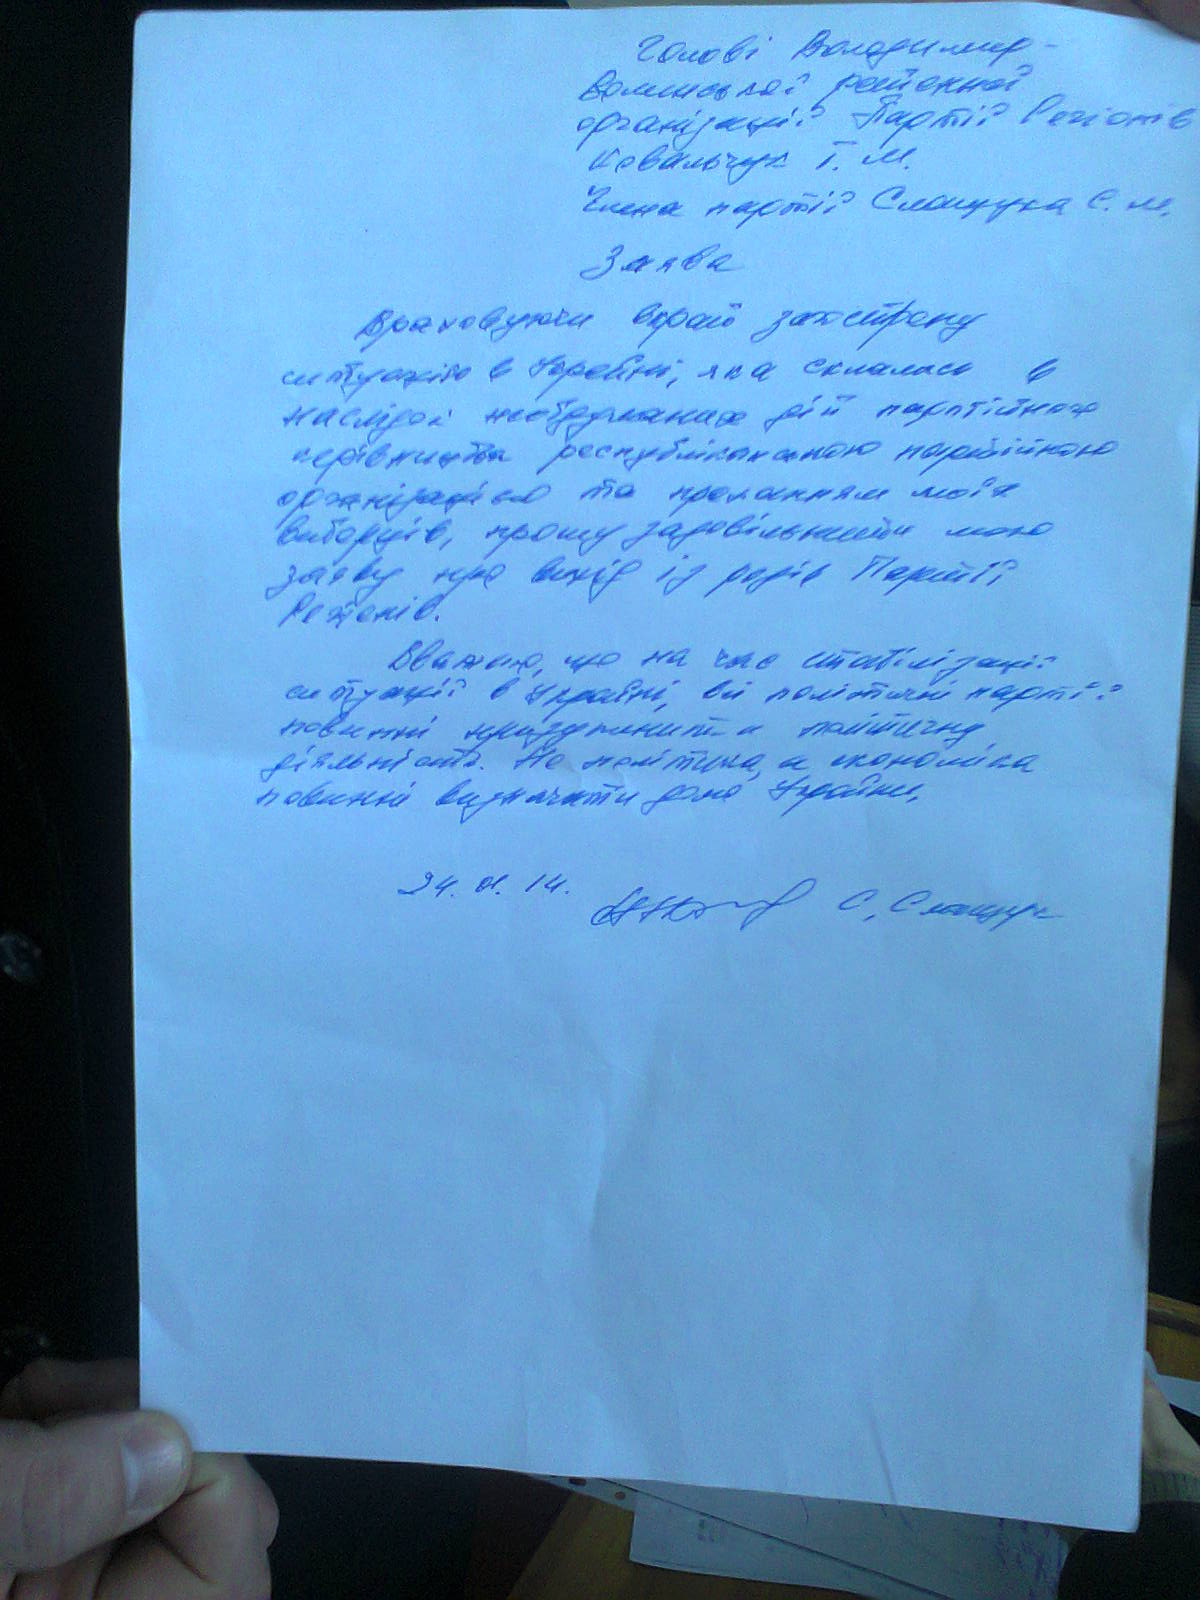 Голові Володимир-
Волинської районної
організації Партії Регіонів
Ковальчук Т. М.
Члена партії Слащука С. М.
Заява
Враховуючи вкрай загострену
ситуацію в Україні, яка склалась в
наслідок необдуманих дій партійного
керівництва республіканською партійною
організацією та проханням моїх
виборців, прошу задовільнити мою
заяву про вихід із рядів Партії
Регіонів.
Вважаю, що на час стабілізації
ситуації в Україні, всі політичні партії
повинні призупинити політичну
діяльність. Не політика, а економіка
повинні визначати долю України.
24. 01. 14.
С. Слащук